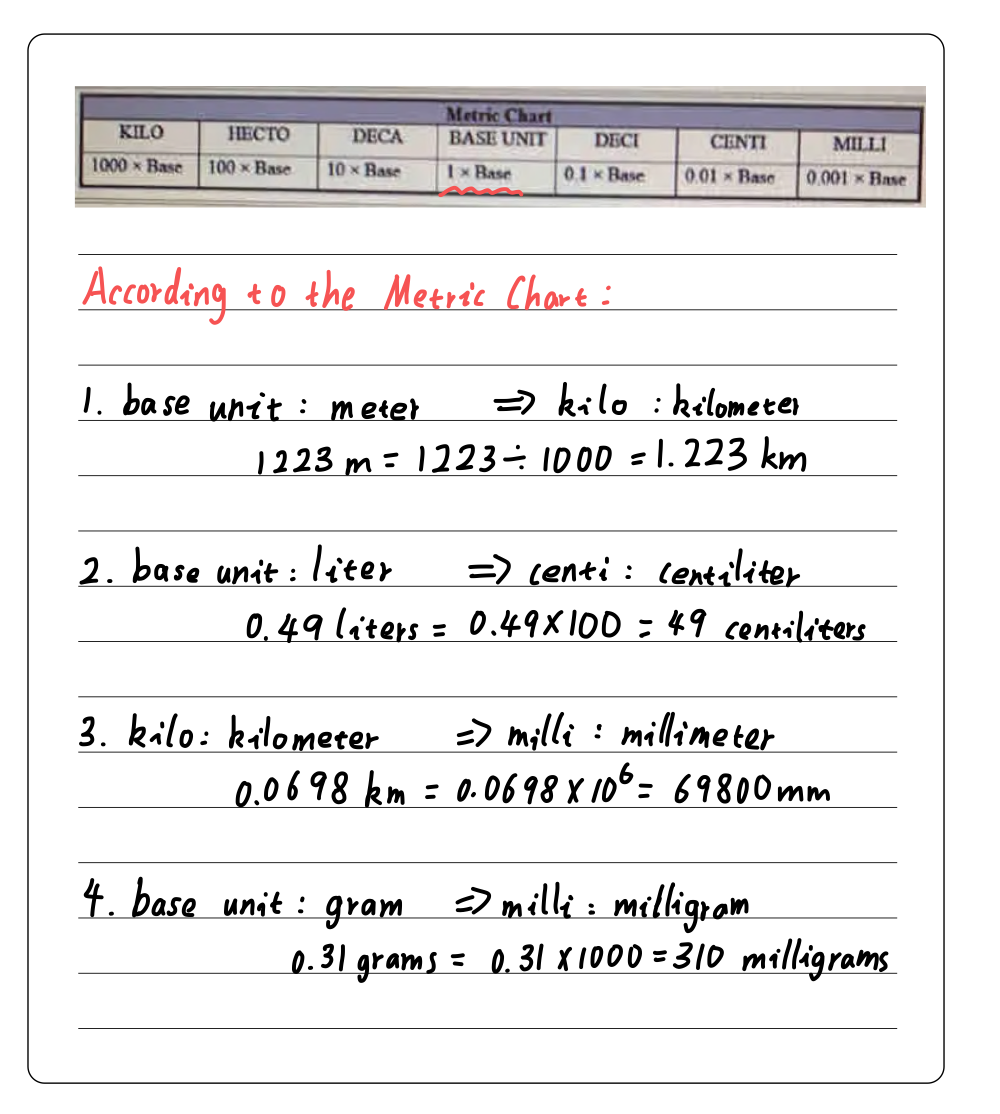 Metric Chart
KILO HECTO DECA BASE UNIT DECI CENTI MILLI
1000 × Base 100 × Base 10 × Base 1 × Base 0.1 × Base 0.01 × Base 0.001 × Base
According to the Metric Chart:
1. base unit : meter => kilo : kilometer
1223 m = 1223 ÷ 1000 = 1.223 km
2. base unit : liter => centi : centiliter
0.49 liters = 0.49 X 100 = 49 centiliters
3. kilo: kilometer => milli : millimeter
0.0698 km = 0.0698 X 10⁶ = 69800 mm
4. base unit : gram => milli : milligram
0.31 grams = 0.31 X 1000 = 310 milligrams